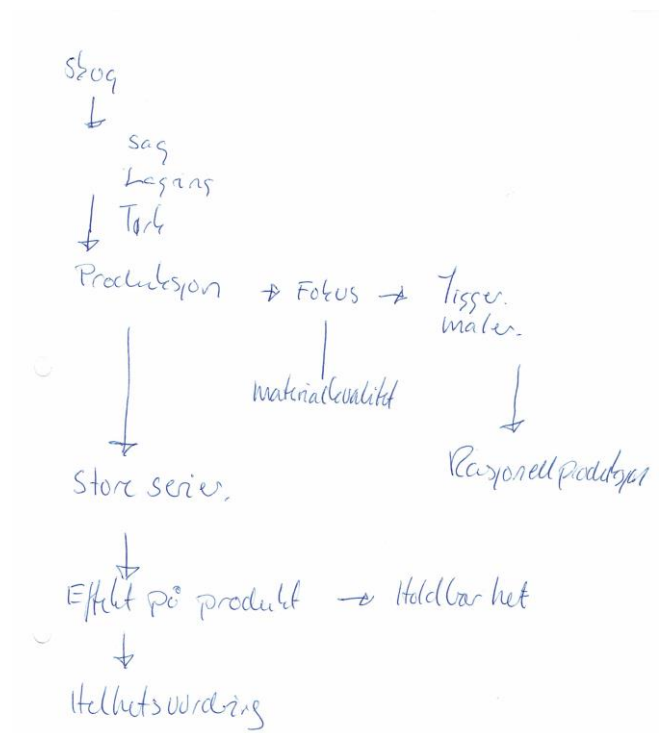 Skog
Sag
Lagring
Tørk
Produksjon → Fokus → Jigger.
maler.
materialkvalitet
Rasjonell produksjon
Store serier.
Effekt på produkt → Holdbarhet
Helhetsvurdering